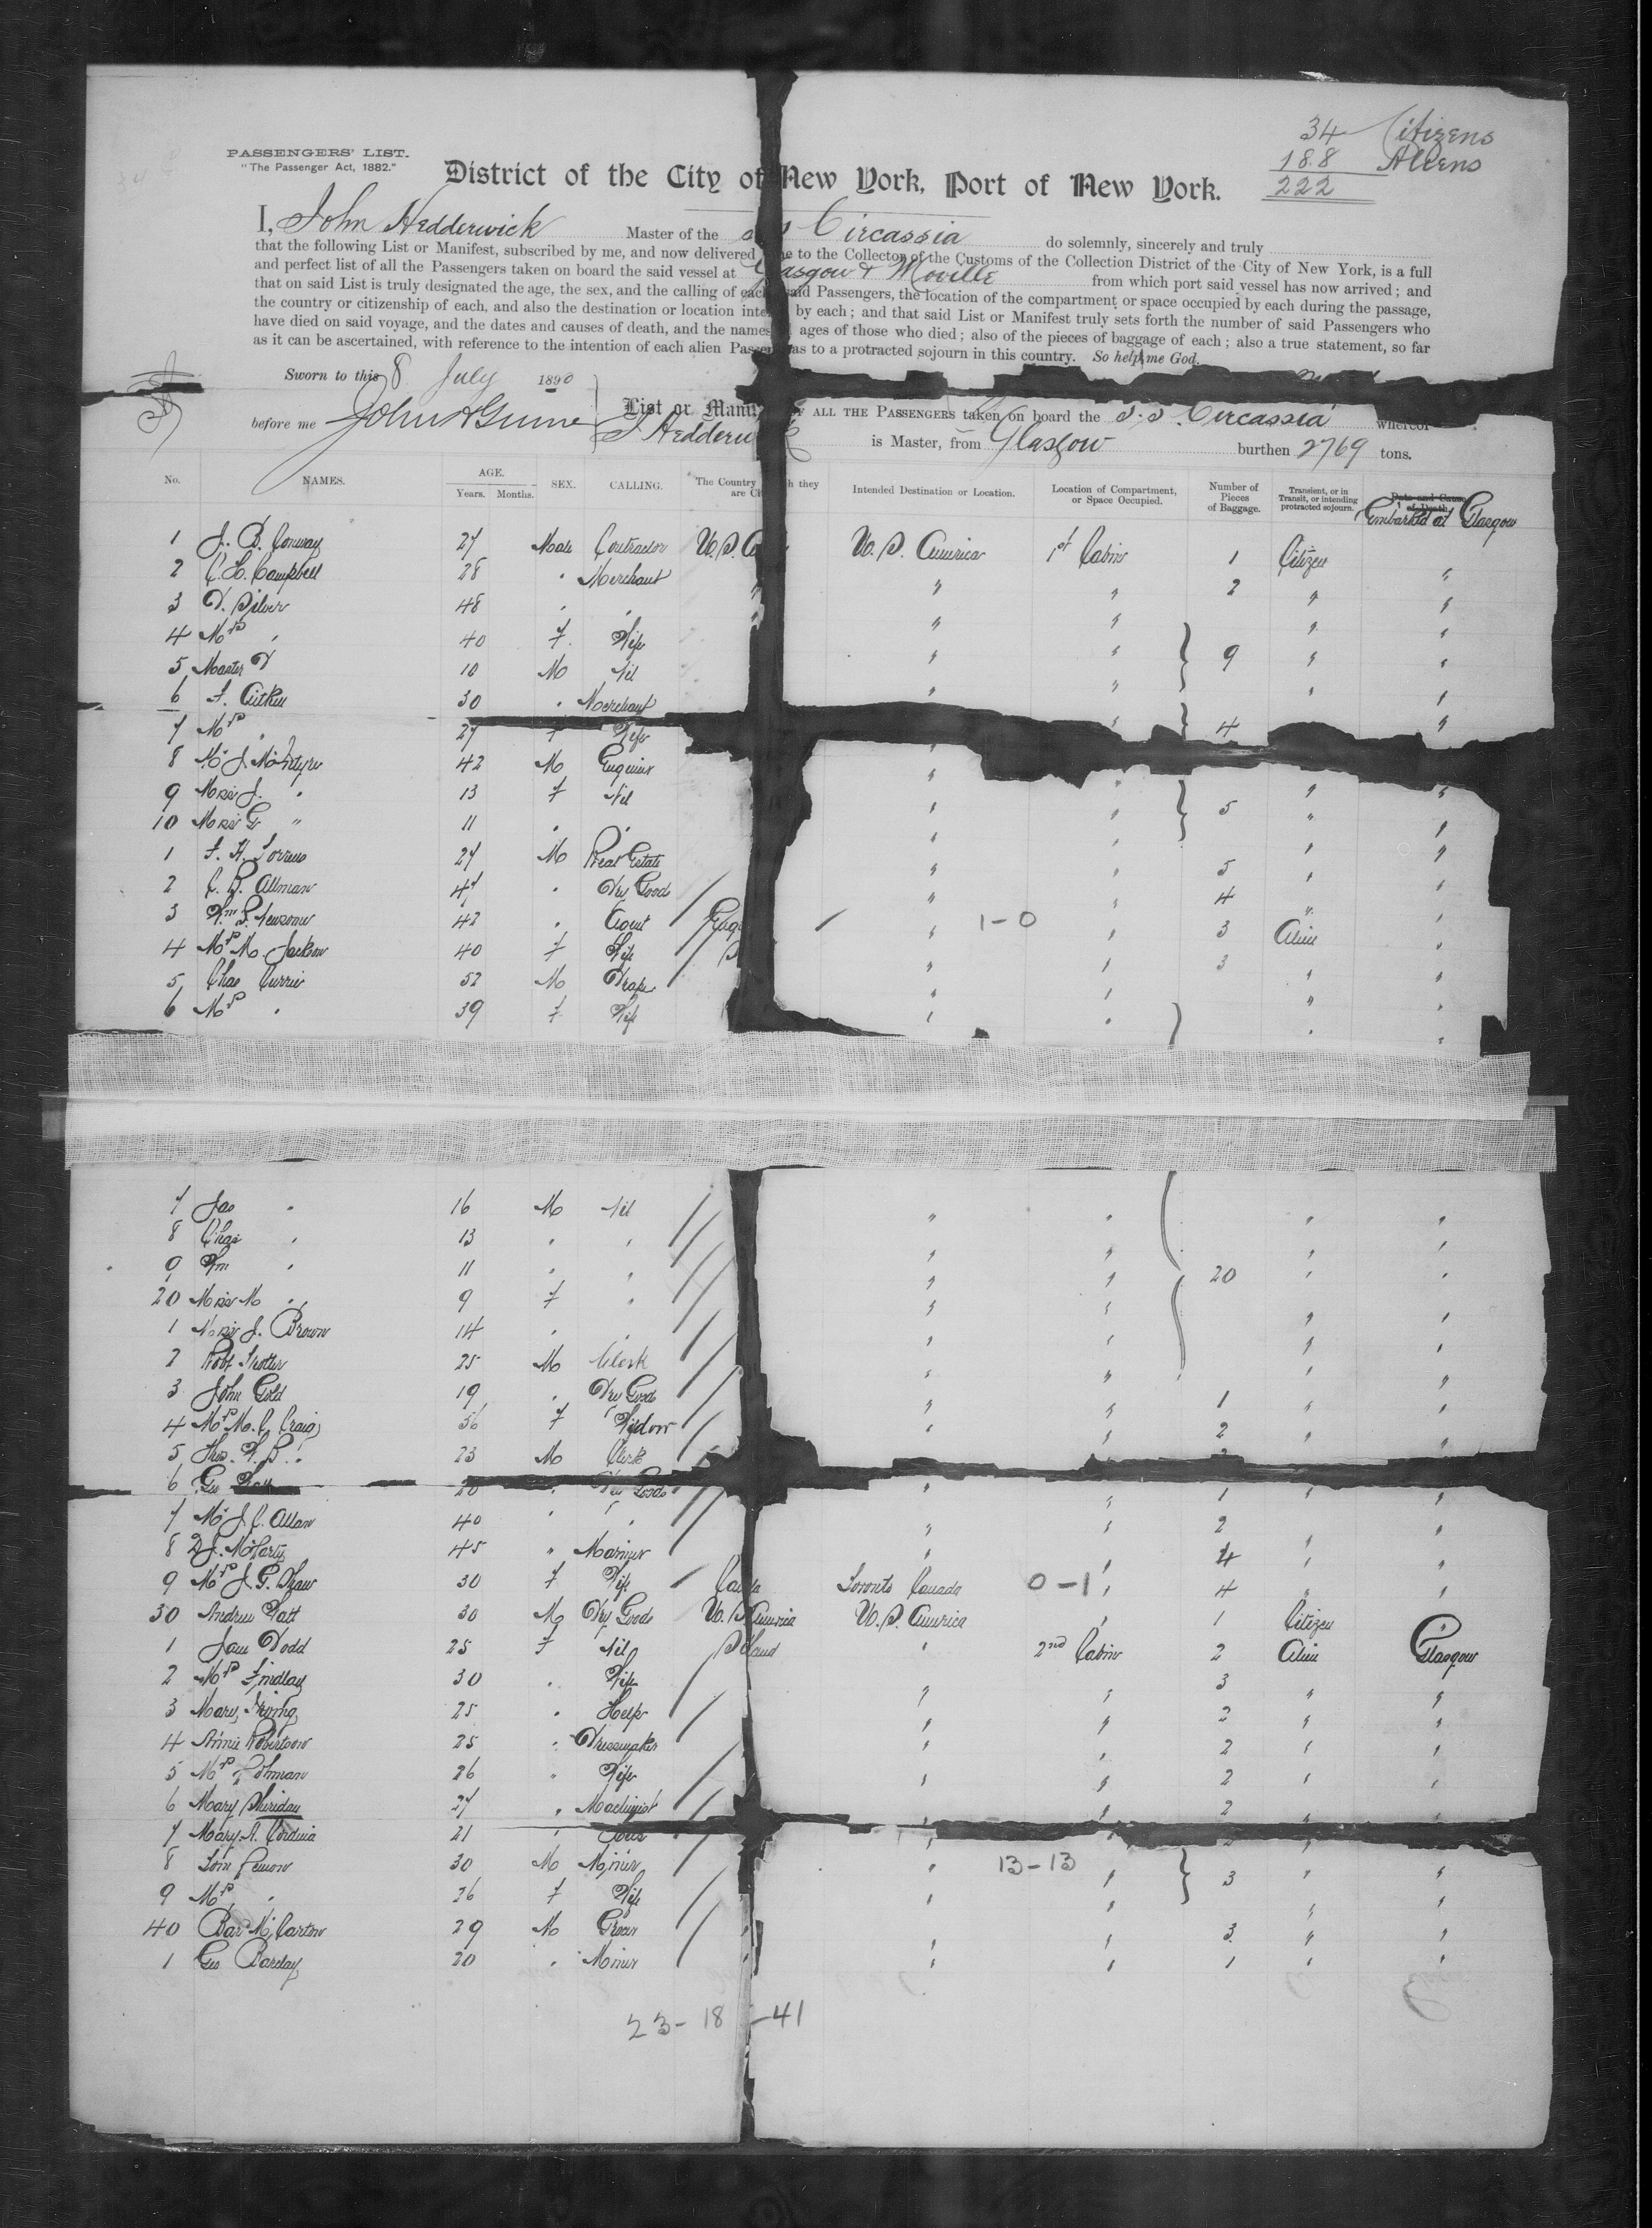 34 Citizens
188 Aliens
222
PASSENGERS' LIST.
"The Passenger Act, 1882."
District of the City of New York, Port of New York.
I, John Hedderwick Master of the s Circassia do solemnly, sincerely and truly
that the following List or Manifest, subscribed by me, and now delivered me to the Collector of the Customs of the Collection District of the City of New York, is a full
and perfect list of all the Passengers taken on board the said vessel at Glasgow & Moville from which port said vessel has now arrived; and
that on said List is truly designated the age, the sex, and the calling of each said Passengers, the location of the compartment or space occupied by each during the passage,
the country or citizenship of each, and also the destination or location inte by each; and that said List or Manifest truly sets forth the number of said Passengers who
have died on said voyage, and the dates and causes of death, and the names ages of those who died; also of the pieces of baggage of each; also a true statement, so far
as it can be ascertained, with reference to the intention of each alien Passen as to a protracted sojourn in this country. So help me God.
Sworn to this 8 July 1890
before me
List or Mani OF ALL THE PASSENGERS taken on board the S.S. Circassia whereof
J Hedderw is Master, from Glasgow burthen 2769 tons.
No. NAMES. AGE. Years. Months. SEX. CALLING. The Country h they are Ci Intended Destination or Location. Location of Compartment, or Space Occupied. Number of Pieces of Baggage. Transient, or in Transit, or intending protracted sojourn. Date and Cause of Death. Embarked at Glasgow
1 J. B. Conway 27 Male Contractor U.S. A U.S. America 1st Cabin 1 Citizen
2 C. H. Campbell 28 " Merchant " " " 2 " "
3 D. Silver 48 " " " " " "
4 Mrs " 40 F. Wife " " " "
5 Master D 10 M Nil " " 9 " "
6 F. Aitken 30 " Merchant " " " "
7 Mrs " 27 F Wife " 4 "
8 Mr J. McIntyre 42 M Engineer " " " "
9 Miss J. " 13 F Nil " " 5 " "
10 Miss G " 11 " " " " " "
1 F. H. 27 M Real Estate " " 5 " "
2 C. B. Allman 47 " Dry Goods " " 4 " "
3 Wm. Newsome 42 " Agent Eng " 1-0 " 3 Alien "
4 Mrs M. Jackson 40 F Wife S " " 3 " "
5 Chas Currie 52 M Draper " " " "
6 Mrs " 39 F Wife " " " "
7 Jas " 16 M Nil " " " "
8 Chas " 13 " " " " " "
9 Wm " 11 " " " " 20 " "
20 Miss M " 9 F " " " " "
1 Miss J. Brown 14 " " " " " "
2 Robt Trotter 25 M Clerk " " "
3 John Gold 19 " Dry Goods " 1 " "
4 Mrs M. C. Craig 56 F Widow " " 2 " "
5 Thos. W. B. " 23 M Clerk
6 Geo 20 " Dry Goods " " 1 " "
7 Mr J. C. Allan 40 " " " " 2 " "
8 D J. McCarty 45 " Mariner " " 4 " "
9 Mrs J. G. Shaw 30 F Wife Canada Toronto Canada 0-1 " 4 " "
30 Andrew Watt 30 M Dry Goods U.S America U.S. America " 1 Citizen
1 Jane Dodd 25 F Nil S land " 2nd Cabin 2 Alien Glasgow
2 Mrs Findlay 30 " Wife " " 3 " "
3 Mary 25 " Help " " 2 " "
4 Annie Robertson 25 " Dressmaker " " 2 " "
5 Mrs 26 " Wife " " 2 " "
6 Mary Sheridan 27 " Machinist " 2 "
7 Mary A. 21 "
8 30 M Miner " 13-13 " 3 " "
9 Mrs " 26 F Wife " " " "
40 McCarton 29 M Grocer " " 3 " "
1 Geo Barclay 20 " Miner " " 1 " "
23-18-41